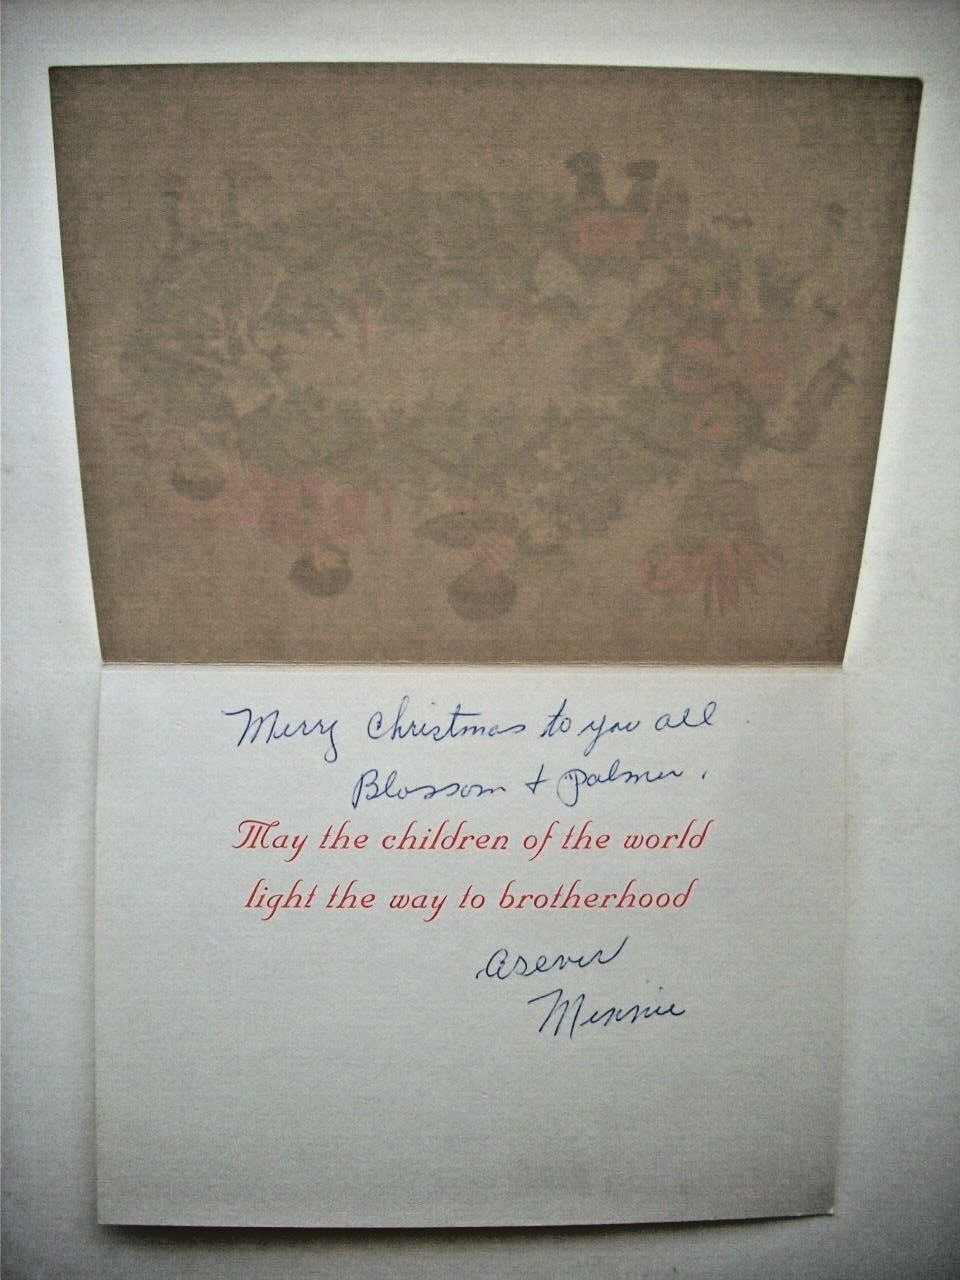 Merry Christmas to you all
Blossom + Palmer.
May the children of the world
light the way to brotherhood
asever
Minnie